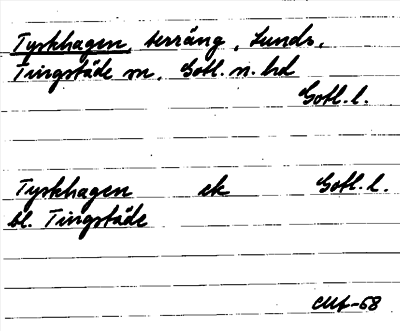 Tyskhagen, terräng, Lunds,
Tingstäde sn, Gotl. n. hd
Gotl. l.
Tyskhagen ek Gotl. l.
bl. Tingstäde
-68